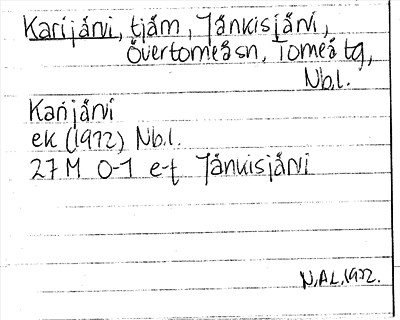 Karijärvi, tjärn, Jänkisjärvi,
Övertorneå sn, Torneå tg,
Nb.l.
Karijärvi
ek (1972) Nb.l.
27 M 0-1 e-f Jänkisjärvi
N.Ä.L. 1972.